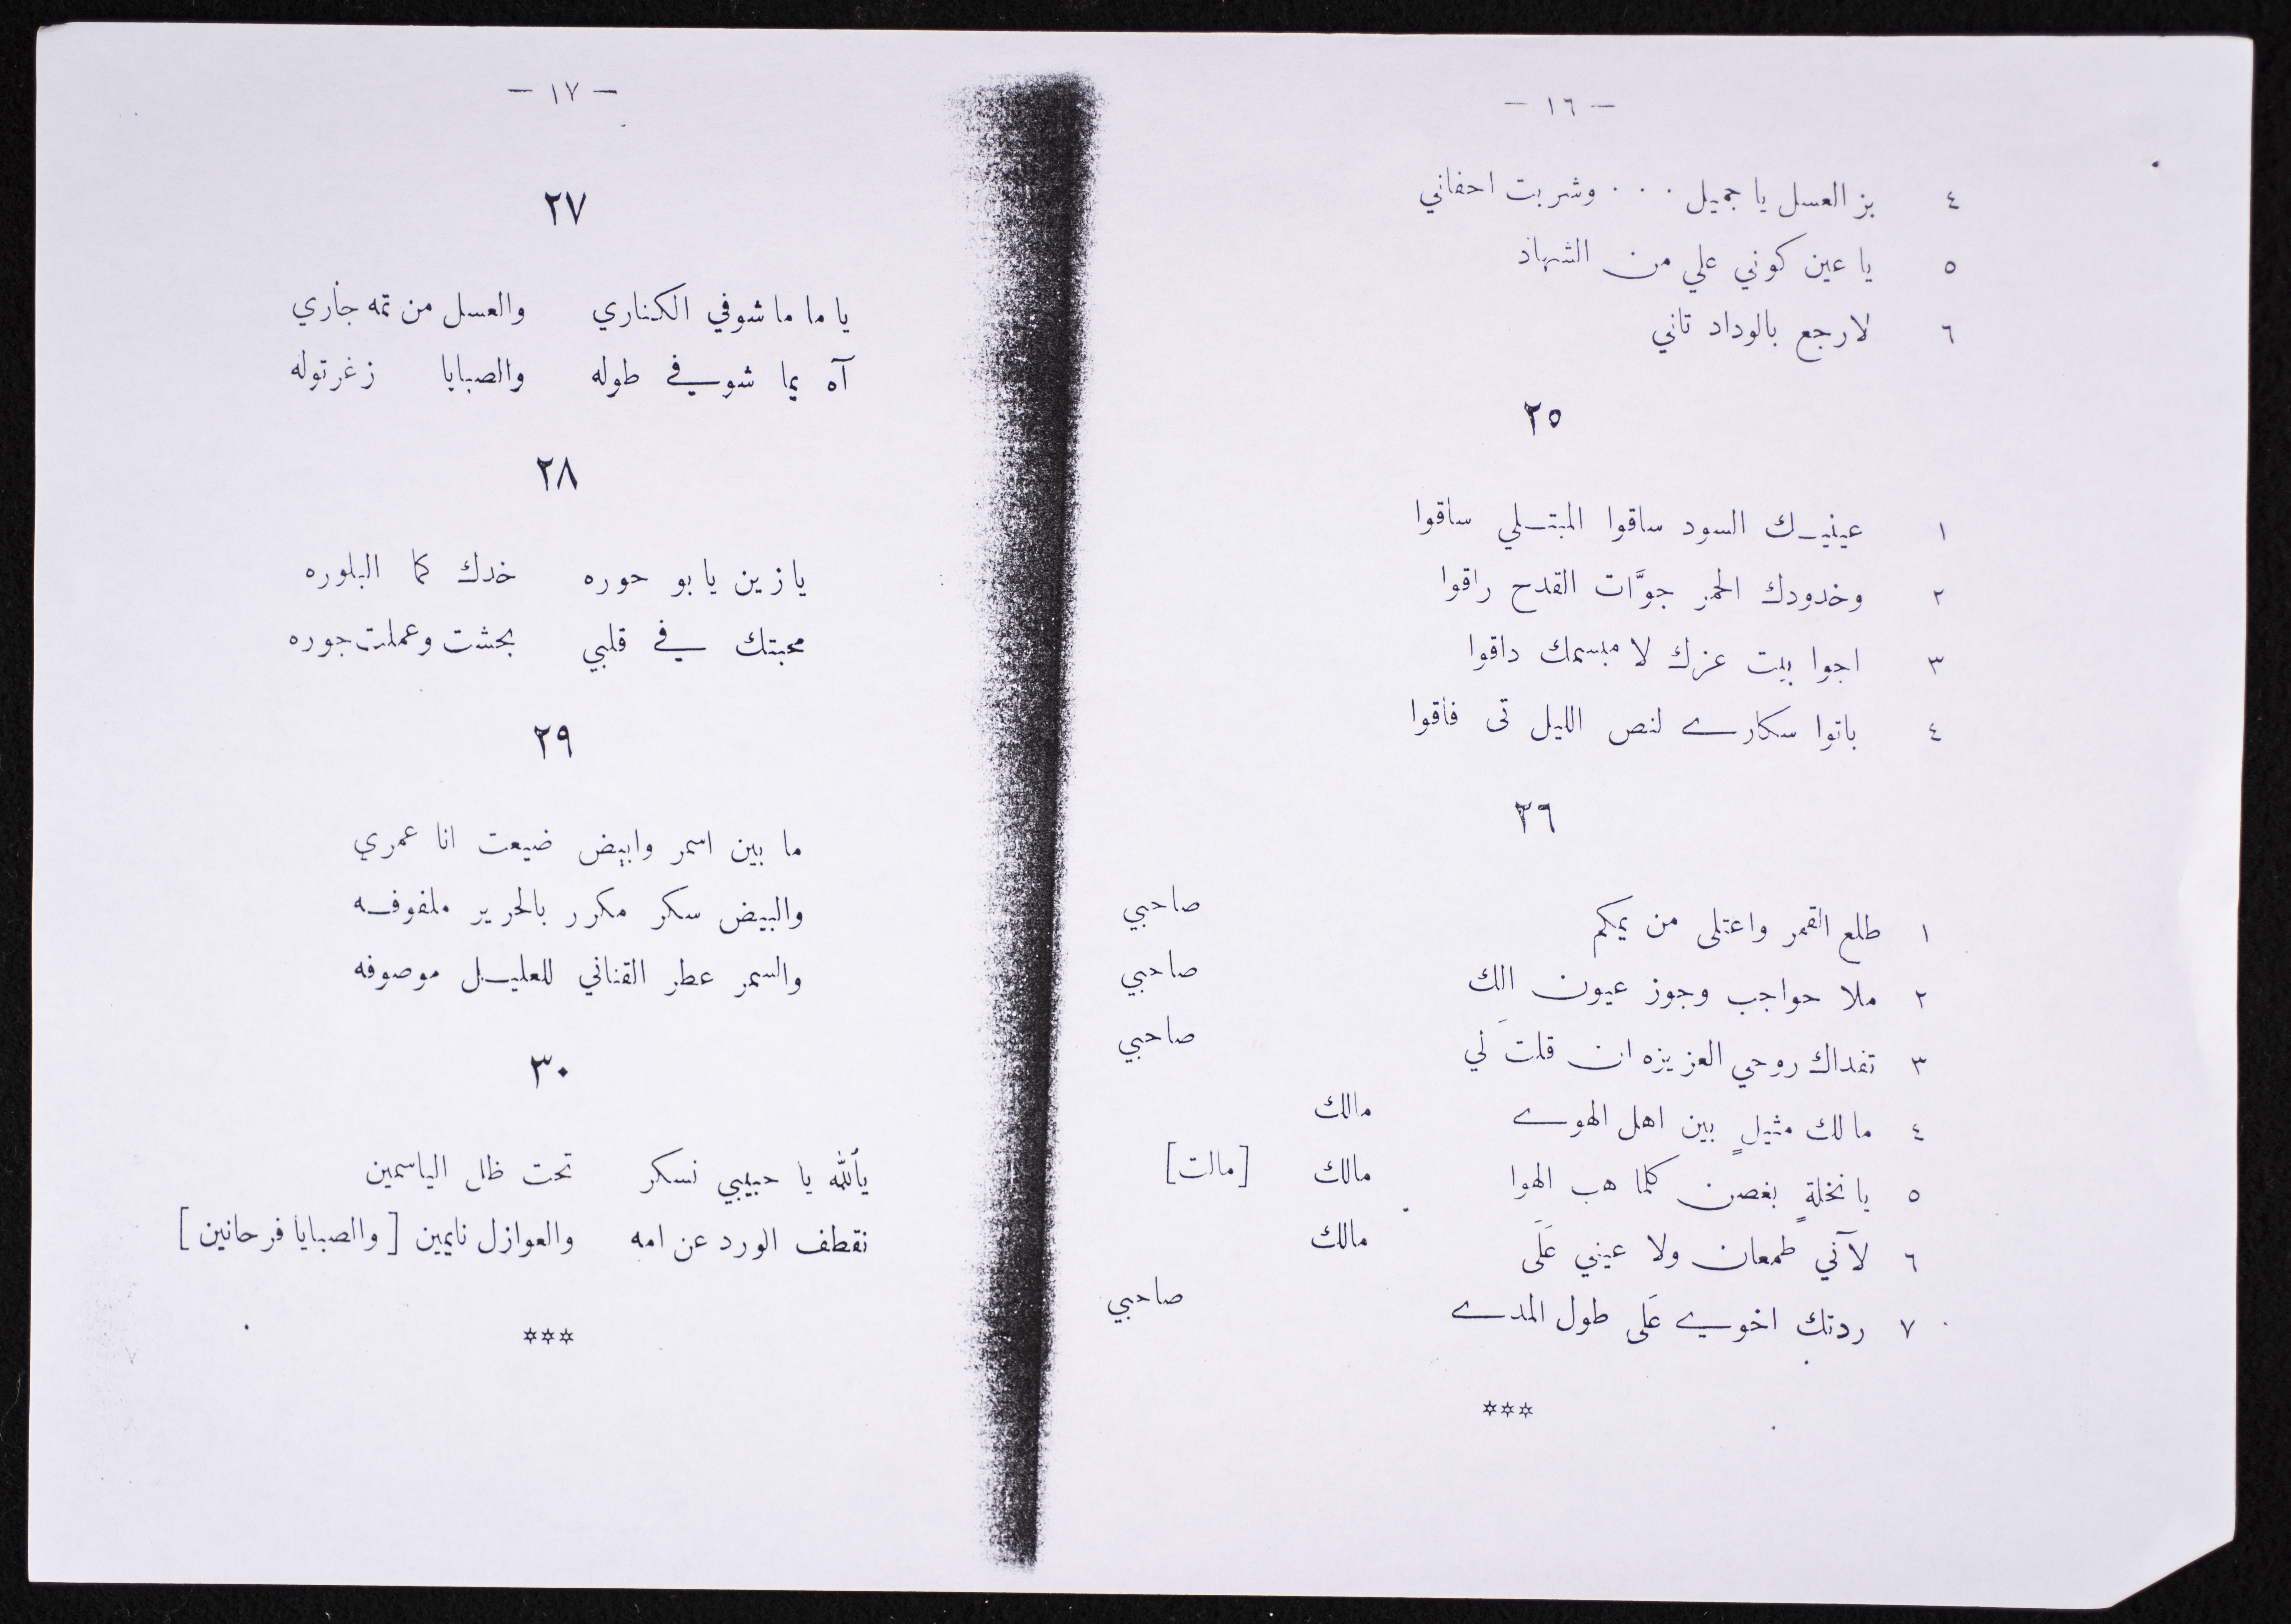 — ١٦ —
٤ بز العسل يا جميل . . . وشربت احفاني
٥ يا عين كوني علي من الشهاد
٦ لارجع بالوداد تاني
٢٥
١ عينيك السود ساقوا المبتلي ساقوا
٢ وخدودك الحمر جوَّات القدح راقوا
٣ اجوا بيت عزك لا مبسمك داقوا
٤ باتوا سكارے لنص الليل تى فاقوا
٢٦
١ طلع القمر واعتلى من يمكم صاحبي
٢ ملا حواجب وجوز عيون الك صاحبي
٣ تفداك روحي العزيزه ان قلتَ لي صاحبي
٤ مالك مثيلٍ بين اهل الهوے مالك
٥ يا نخلةٍ بغصن كلما هب الهوا مالك [مالت]
٦ لآني طمعان ولا عيني عَلَى مالك
٧ ردتك اخوي عَلى طول المدے صاحبي
***
— ١٧ —
٢٧
يا ما ما شوفي الكناري والعسل من تمه جاري
آه يما شوفي طوله والصبايا زغرتوله
٢٨
يا زين يا بو حوره خدك كما البلوره
محبتك في قلبي بحشت وعملت جوره
٢٩
ما بين اسمر وابيض ضيعت انا عمري
والبيض سكر مكرر بالحرير ملفوفه
والسمر عطر القناني للعليل موصوفه
٣٠
يألله يا حبيبي نسكر تحت ظل الياسمين
نقطف الورد عن امه والعوازل نايمين [والصبايا فرحانين]
***